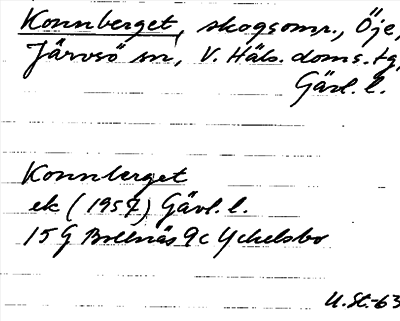 Konnberget, skogsomr., Öje,
Järvsö sn, V. Häls. doms. tg,
Gävl. l.
Konnberget
ek (1957) Gävl. l.
15 G Bollnäs 9c Yckelsbo
U. St. -63